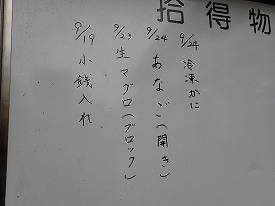 拾得物
9/24 冷凍かに
9/24 あなご(開き)
9/23 生マグロ(ブロック)
9/19 小銭入れ